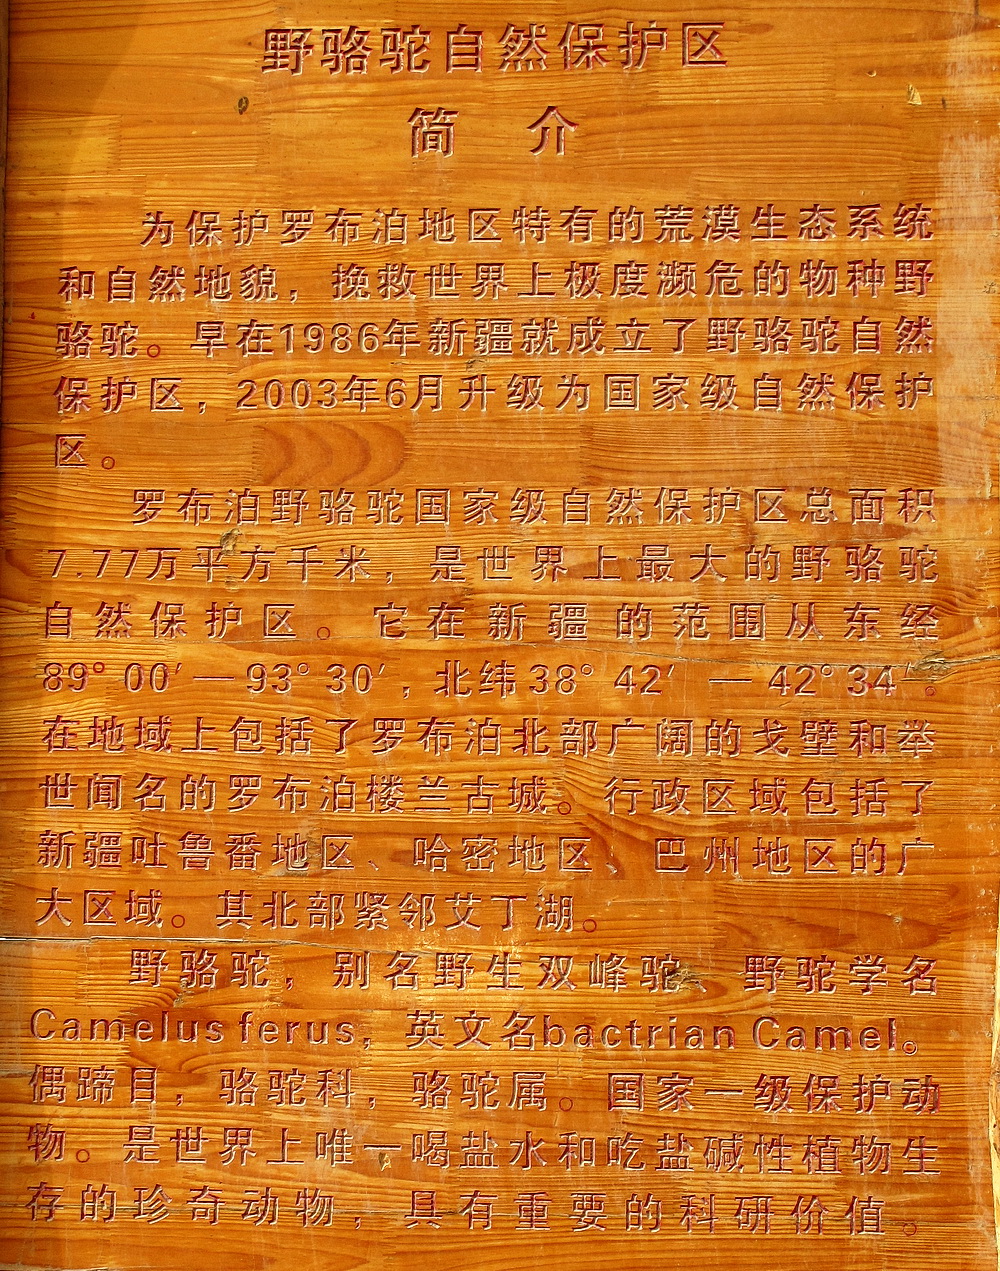 野骆驼自然保护区
简 介
为保护罗布泊地区特有的荒漠生态系统
和自然地貌，挽救世界上极度濒危的物种野
骆驼。早在1986年新疆就成立了野骆驼自然
保护区，2003年6月升级为国家级自然保护
区。
罗布泊野骆驼国家级自然保护区总面积
7.77万平方千米，是世界上最大的野骆驼
自然保护区。它在新疆的范围从东经
89°00′—93°30′，北纬38°42′ —42°34′。
在地域上包括了罗布泊北部广阔的戈壁和举
世闻名的罗布泊楼兰古城。行政区域包括了
新疆吐鲁番地区、哈密地区、巴州地区的广
大区域。其北部紧邻艾丁湖。
野骆驼，别名野生双峰驼、野驼学名
Camelus ferus，英文名bactrian Camel。
偶蹄目，骆驼科，骆驼属。国家一级保护动
物。是世界上唯一喝盐水和吃盐碱性植物生
存的珍奇动物，具有重要的科研价值。